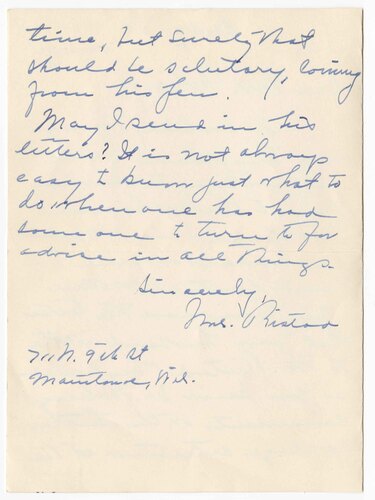 time, but surely that
should be salutary, coming
from his pen.
May I send in his
letters? It is not always
easy to know just what to
do, when one has had
some one to turn to for
advise in all things.
Sincerely,
Mrs.
N. 9th St
Manitowoc, Wis.